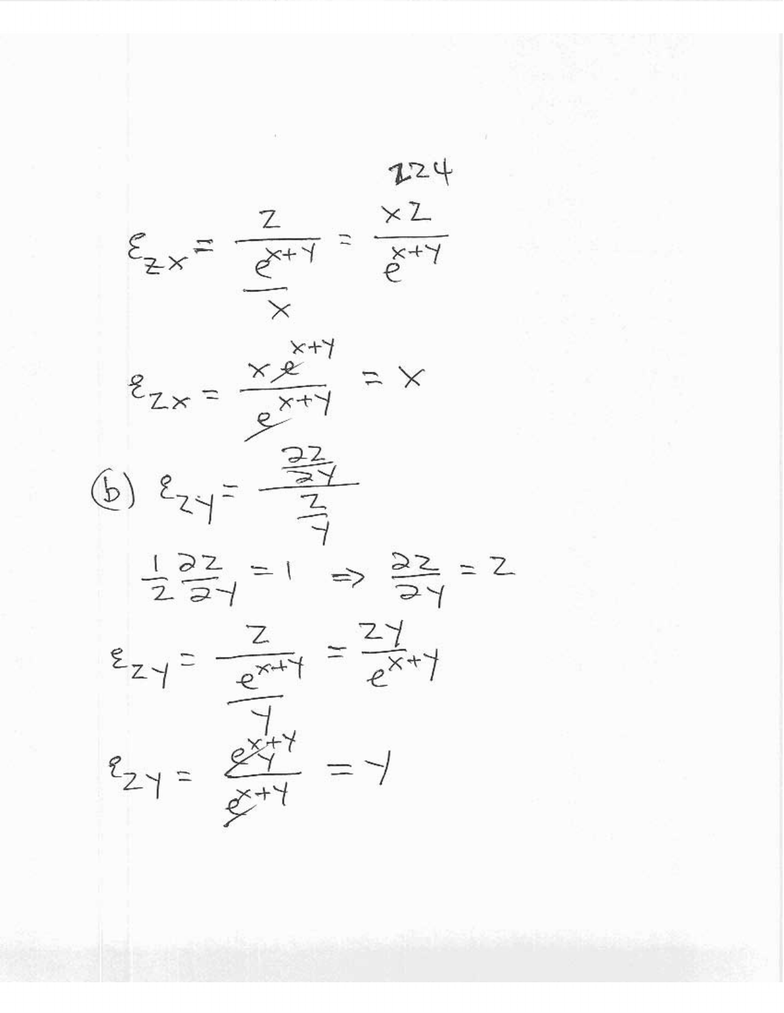 224
ε_zx = z / (e^(x+y) / x) = xz / e^(x+y)
ε_zx = x e^(x+y) / e^(x+y) = x
(b) ε_zy = (∂z/∂y) / (z/y)
1/z ∂z/∂y = 1 ⇒ ∂z/∂y = z
ε_zy = z / (e^(x+y) / y) = zy / e^(x+y)
ε_zy = e^(x+y) y / e^(x+y) = y